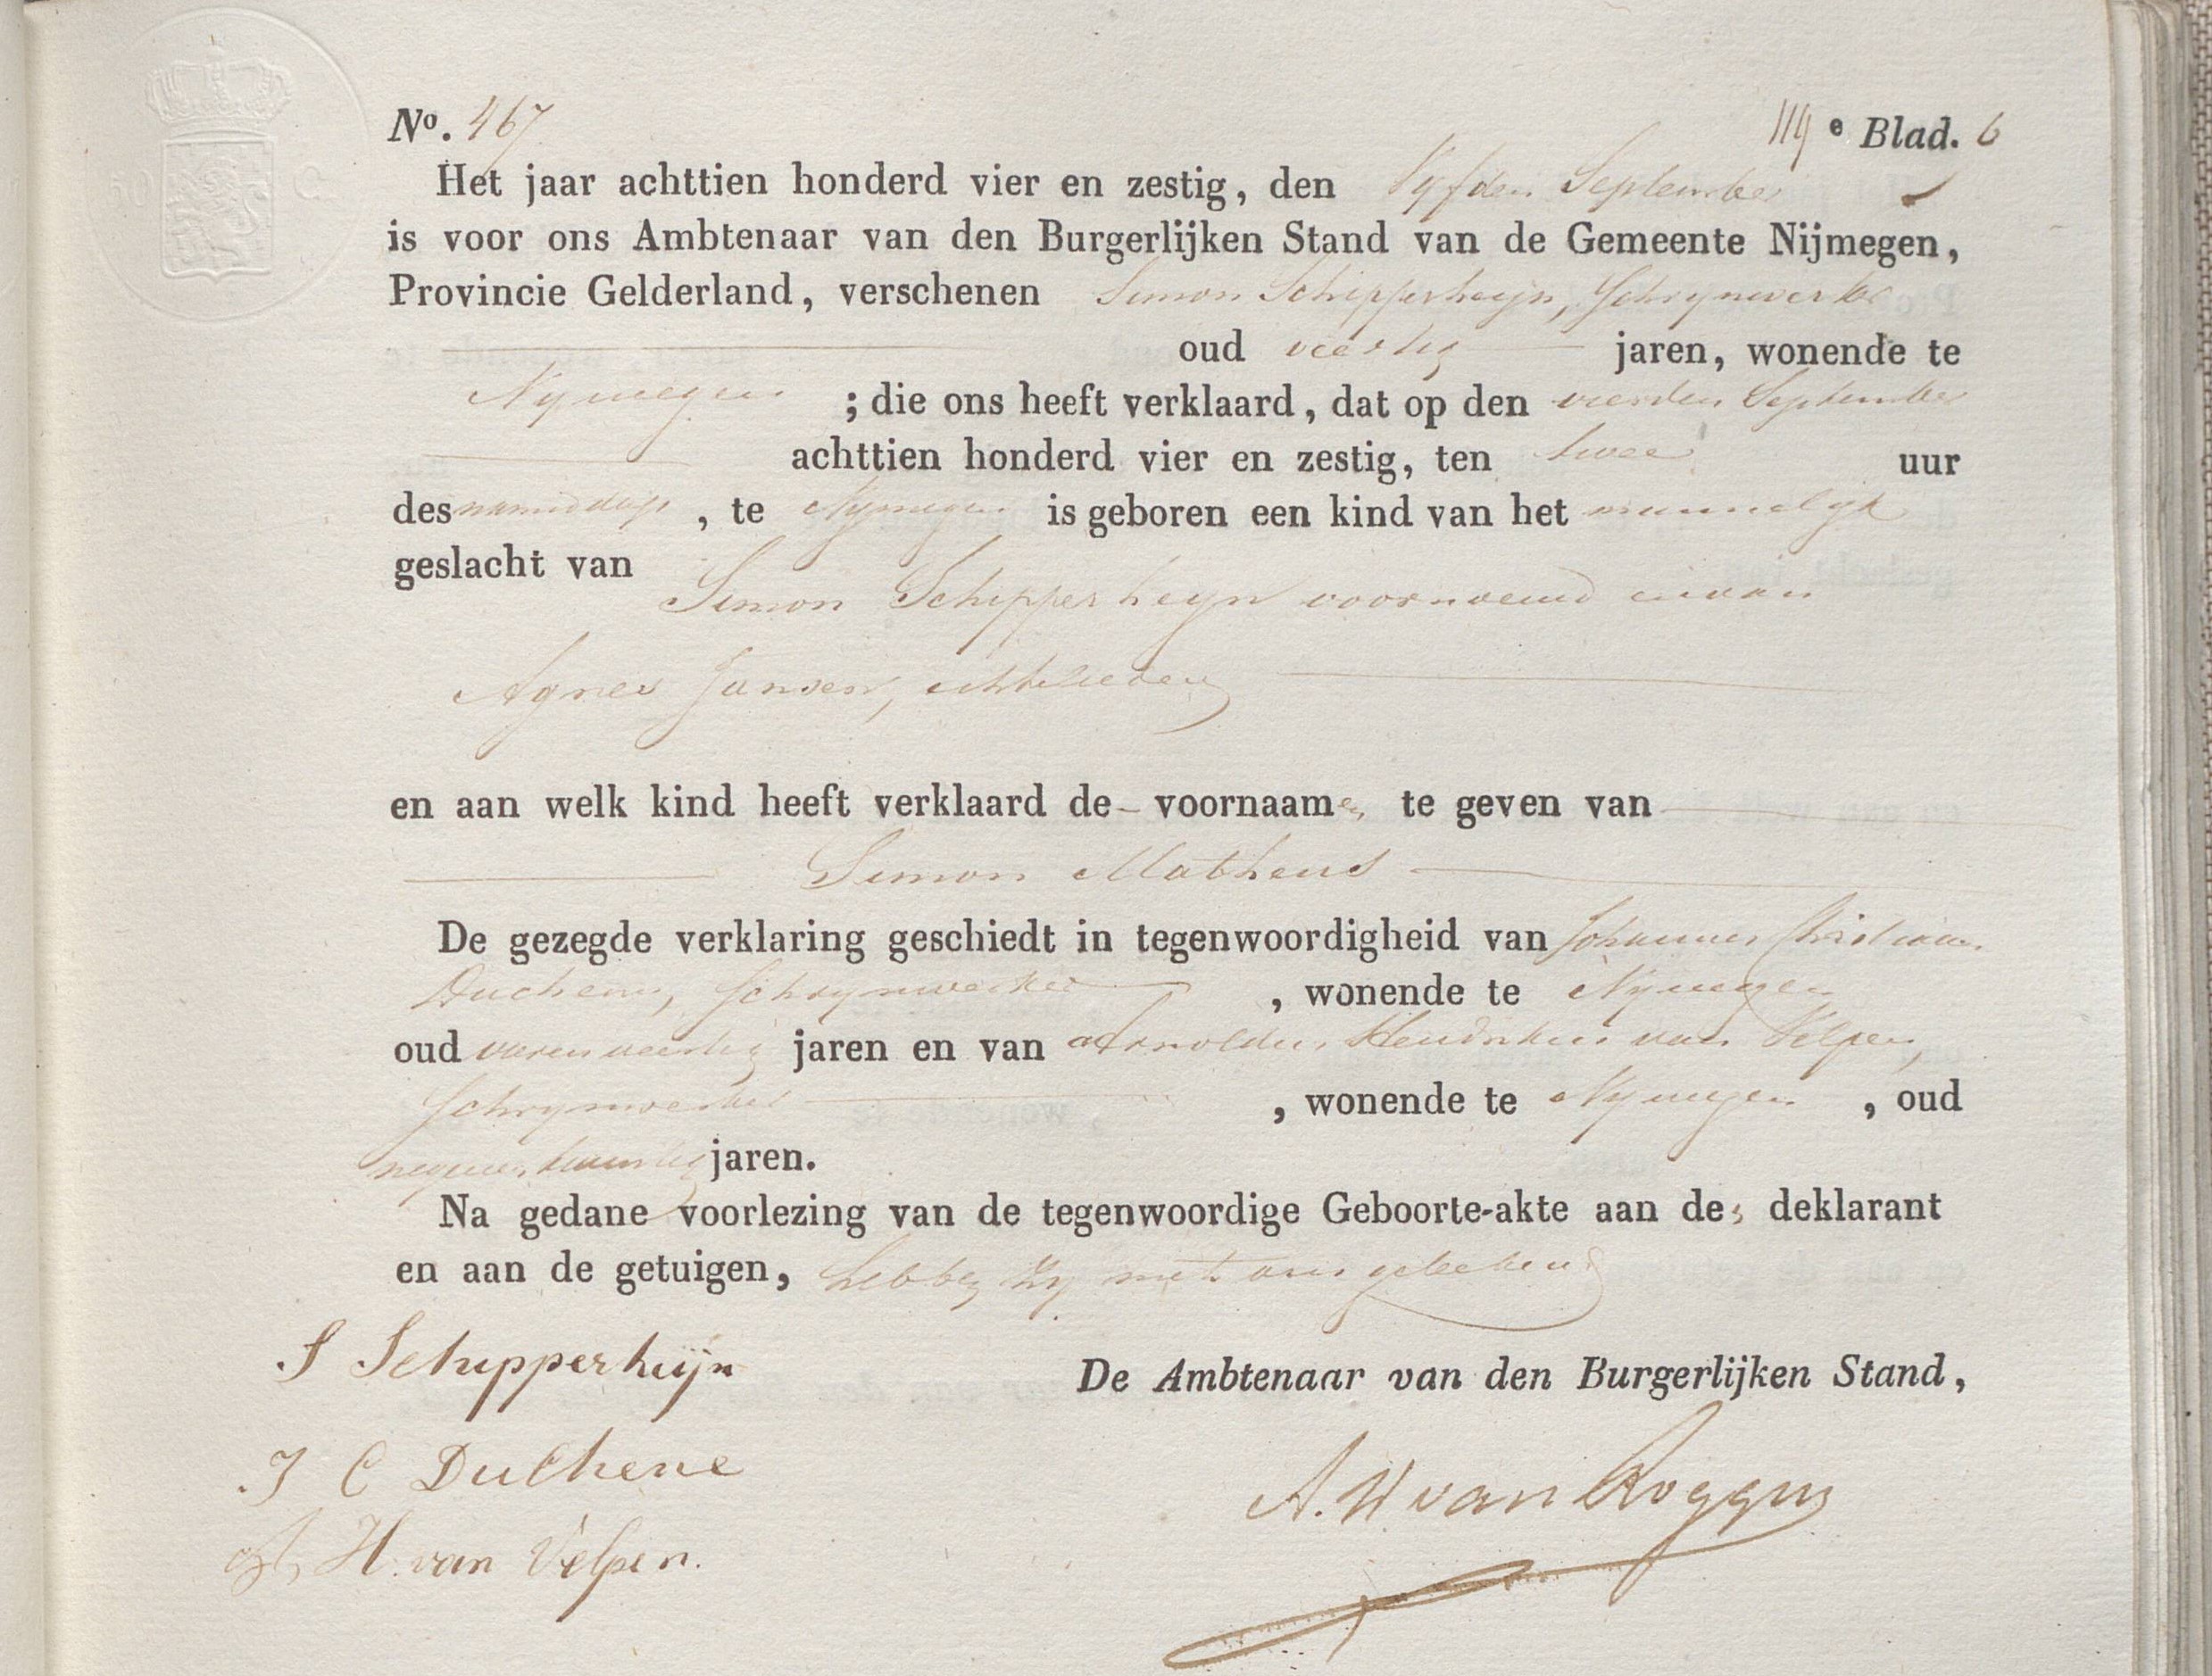 No. 467 119e Blad. 6
Het jaar achttien honderd vier en zestig, den Vyfden September
is voor ons Ambtenaar van den Burgerlijken Stand van de Gemeente Nijmegen,
Provincie Gelderland, verschenen Simon Schipperheyn, Schrynwerker
oud veertig jaren, wonende te
Nymegen ; die ons heeft verklaard, dat op den vierden September
achttien honderd vier en zestig, ten twee uur
des namiddags, te Nymegen is geboren een kind van het mannelyk
geslacht van
Simon Schipperheyn voornoemd en van
Agnes Jansen, echtelieden
en aan welk kind heeft verklaard de voornaamen te geven van
Simon Matheus
De gezegde verklaring geschiedt in tegenwoordigheid van Johannes Christiaan
Duchene, Schrynwerker, wonende te Nymegen
oud jaren en van Arnoldus Hendrikus van Velpen,
Schrynwerker, wonende te Nymegen, oud
negenentwintig jaren.
Na gedane voorlezing van de tegenwoordige Geboorte-akte aan den deklarant
en aan de getuigen, hebben zy met ons geteekend
S Schipperheijn
De Ambtenaar van den Burgerlijken Stand,
J C Duchene
A. W van Roggen
A, H. van Velpen.
50 C